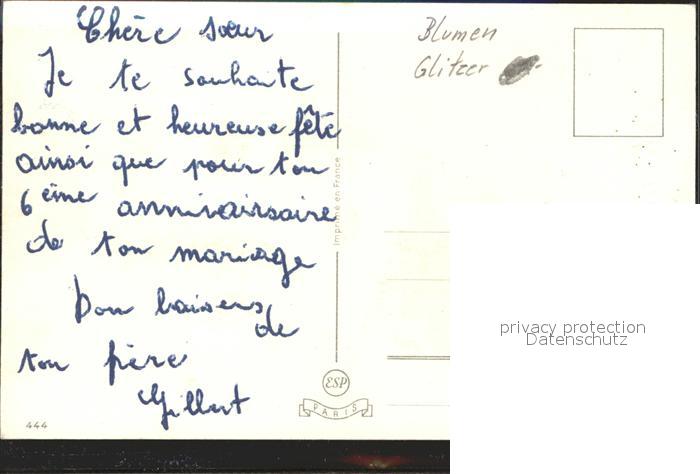 Chère sœur
Je te souhaite
bonne et heureuse fête
ainsi que pour ton
6 ème annivairsaire
de ton mariage
Bon baisers
de
ton frère
Gilbert
444
Imprimé en France
ESP
PARIS
Blumen
Glitzer
privacy protection
Datenschutz